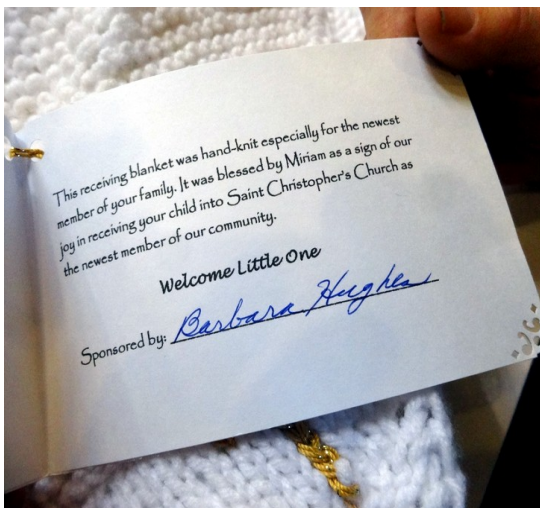 This receiving blanket was hand-knit especially for the newest
member of your family. It was blessed by Miriam as a sign of our
joy in receiving your child into Saint Christopher's Church as
the newest member of our community.
Welcome Little One
Sponsored by: Barbara Hughes